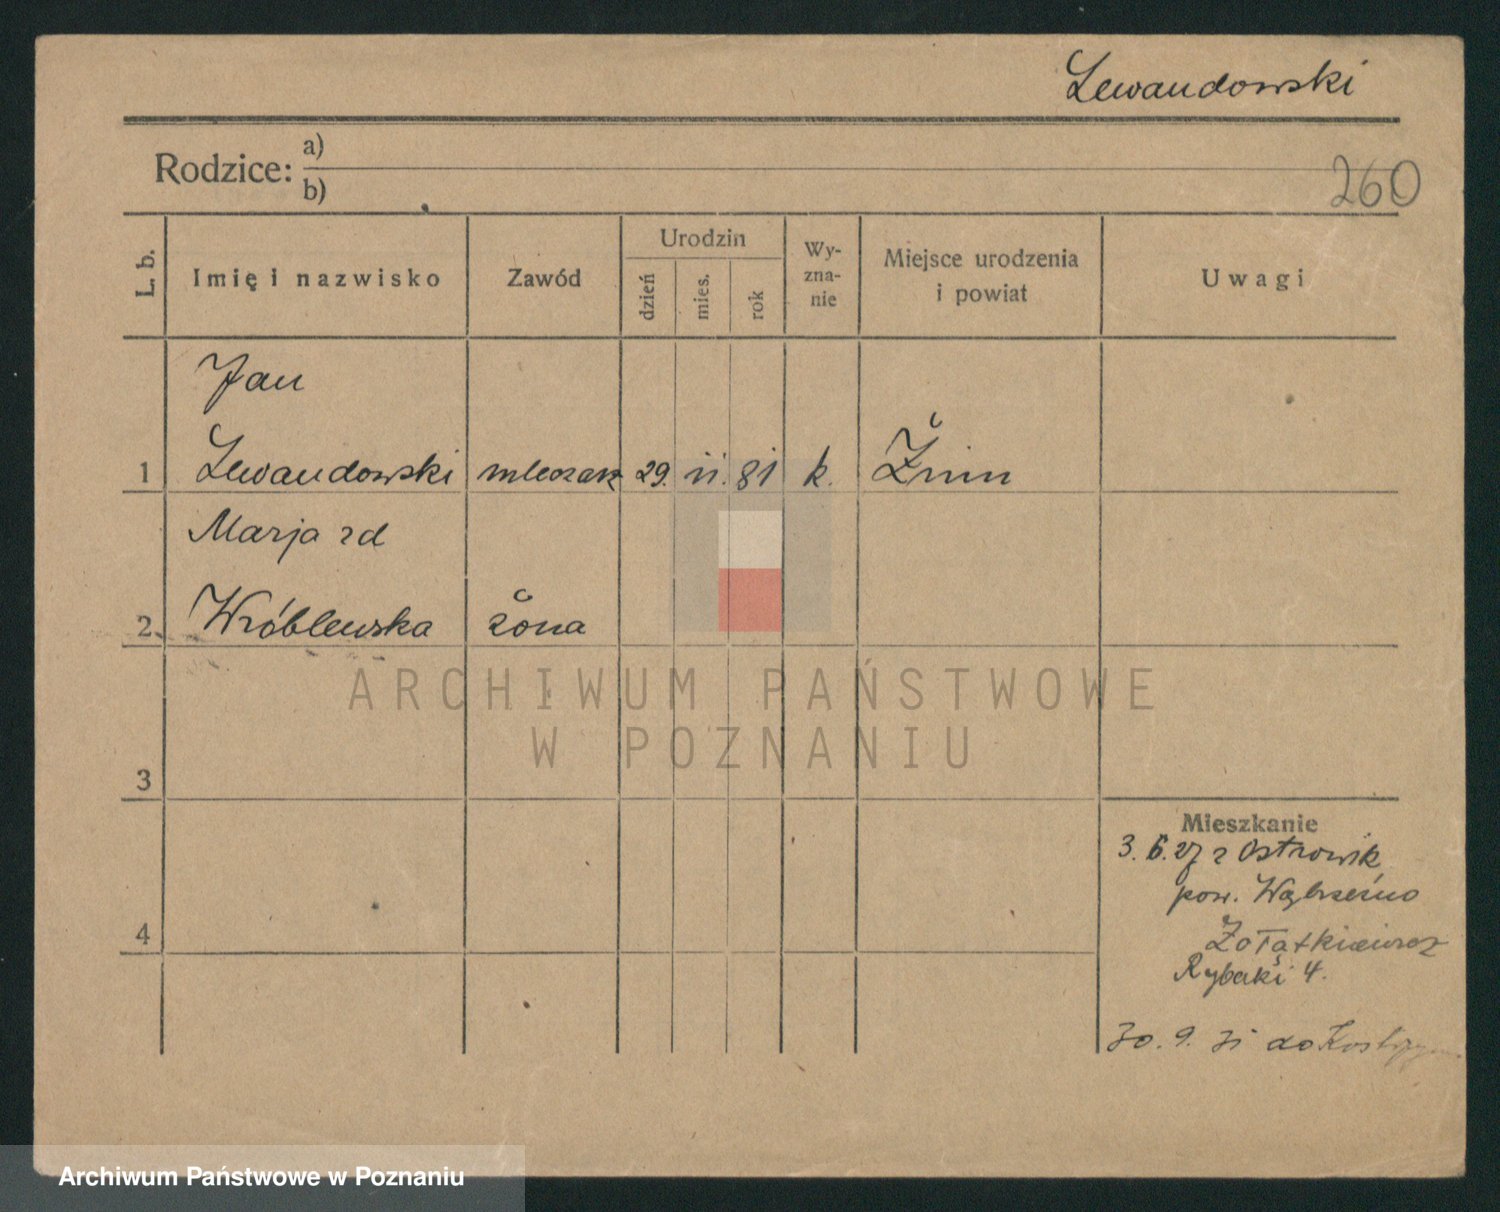 Lewandowski
Rodzice: a)
b)
260
L. b.
Imię i nazwisko
Zawód
Urodzin
dzień
mies.
rok
Wy-
zna-
nie
Miejsce urodzenia
i powiat
Uwagi
Jan
1 Lewandowski mleczarz 29. 11. 81 k. Żnin
Marja zd
2 Wróblewska żona
3
4
Mieszkanie
3. 6. 27 z Ostrowik
pow. Wąbrzeźno
Żołątkiewicz
Rybaki 4.
30. 9. 31 do Kostrzyn
ARCHIWUM PAŃSTWOWE
W POZNANIU
Archiwum Państwowe w Poznaniu